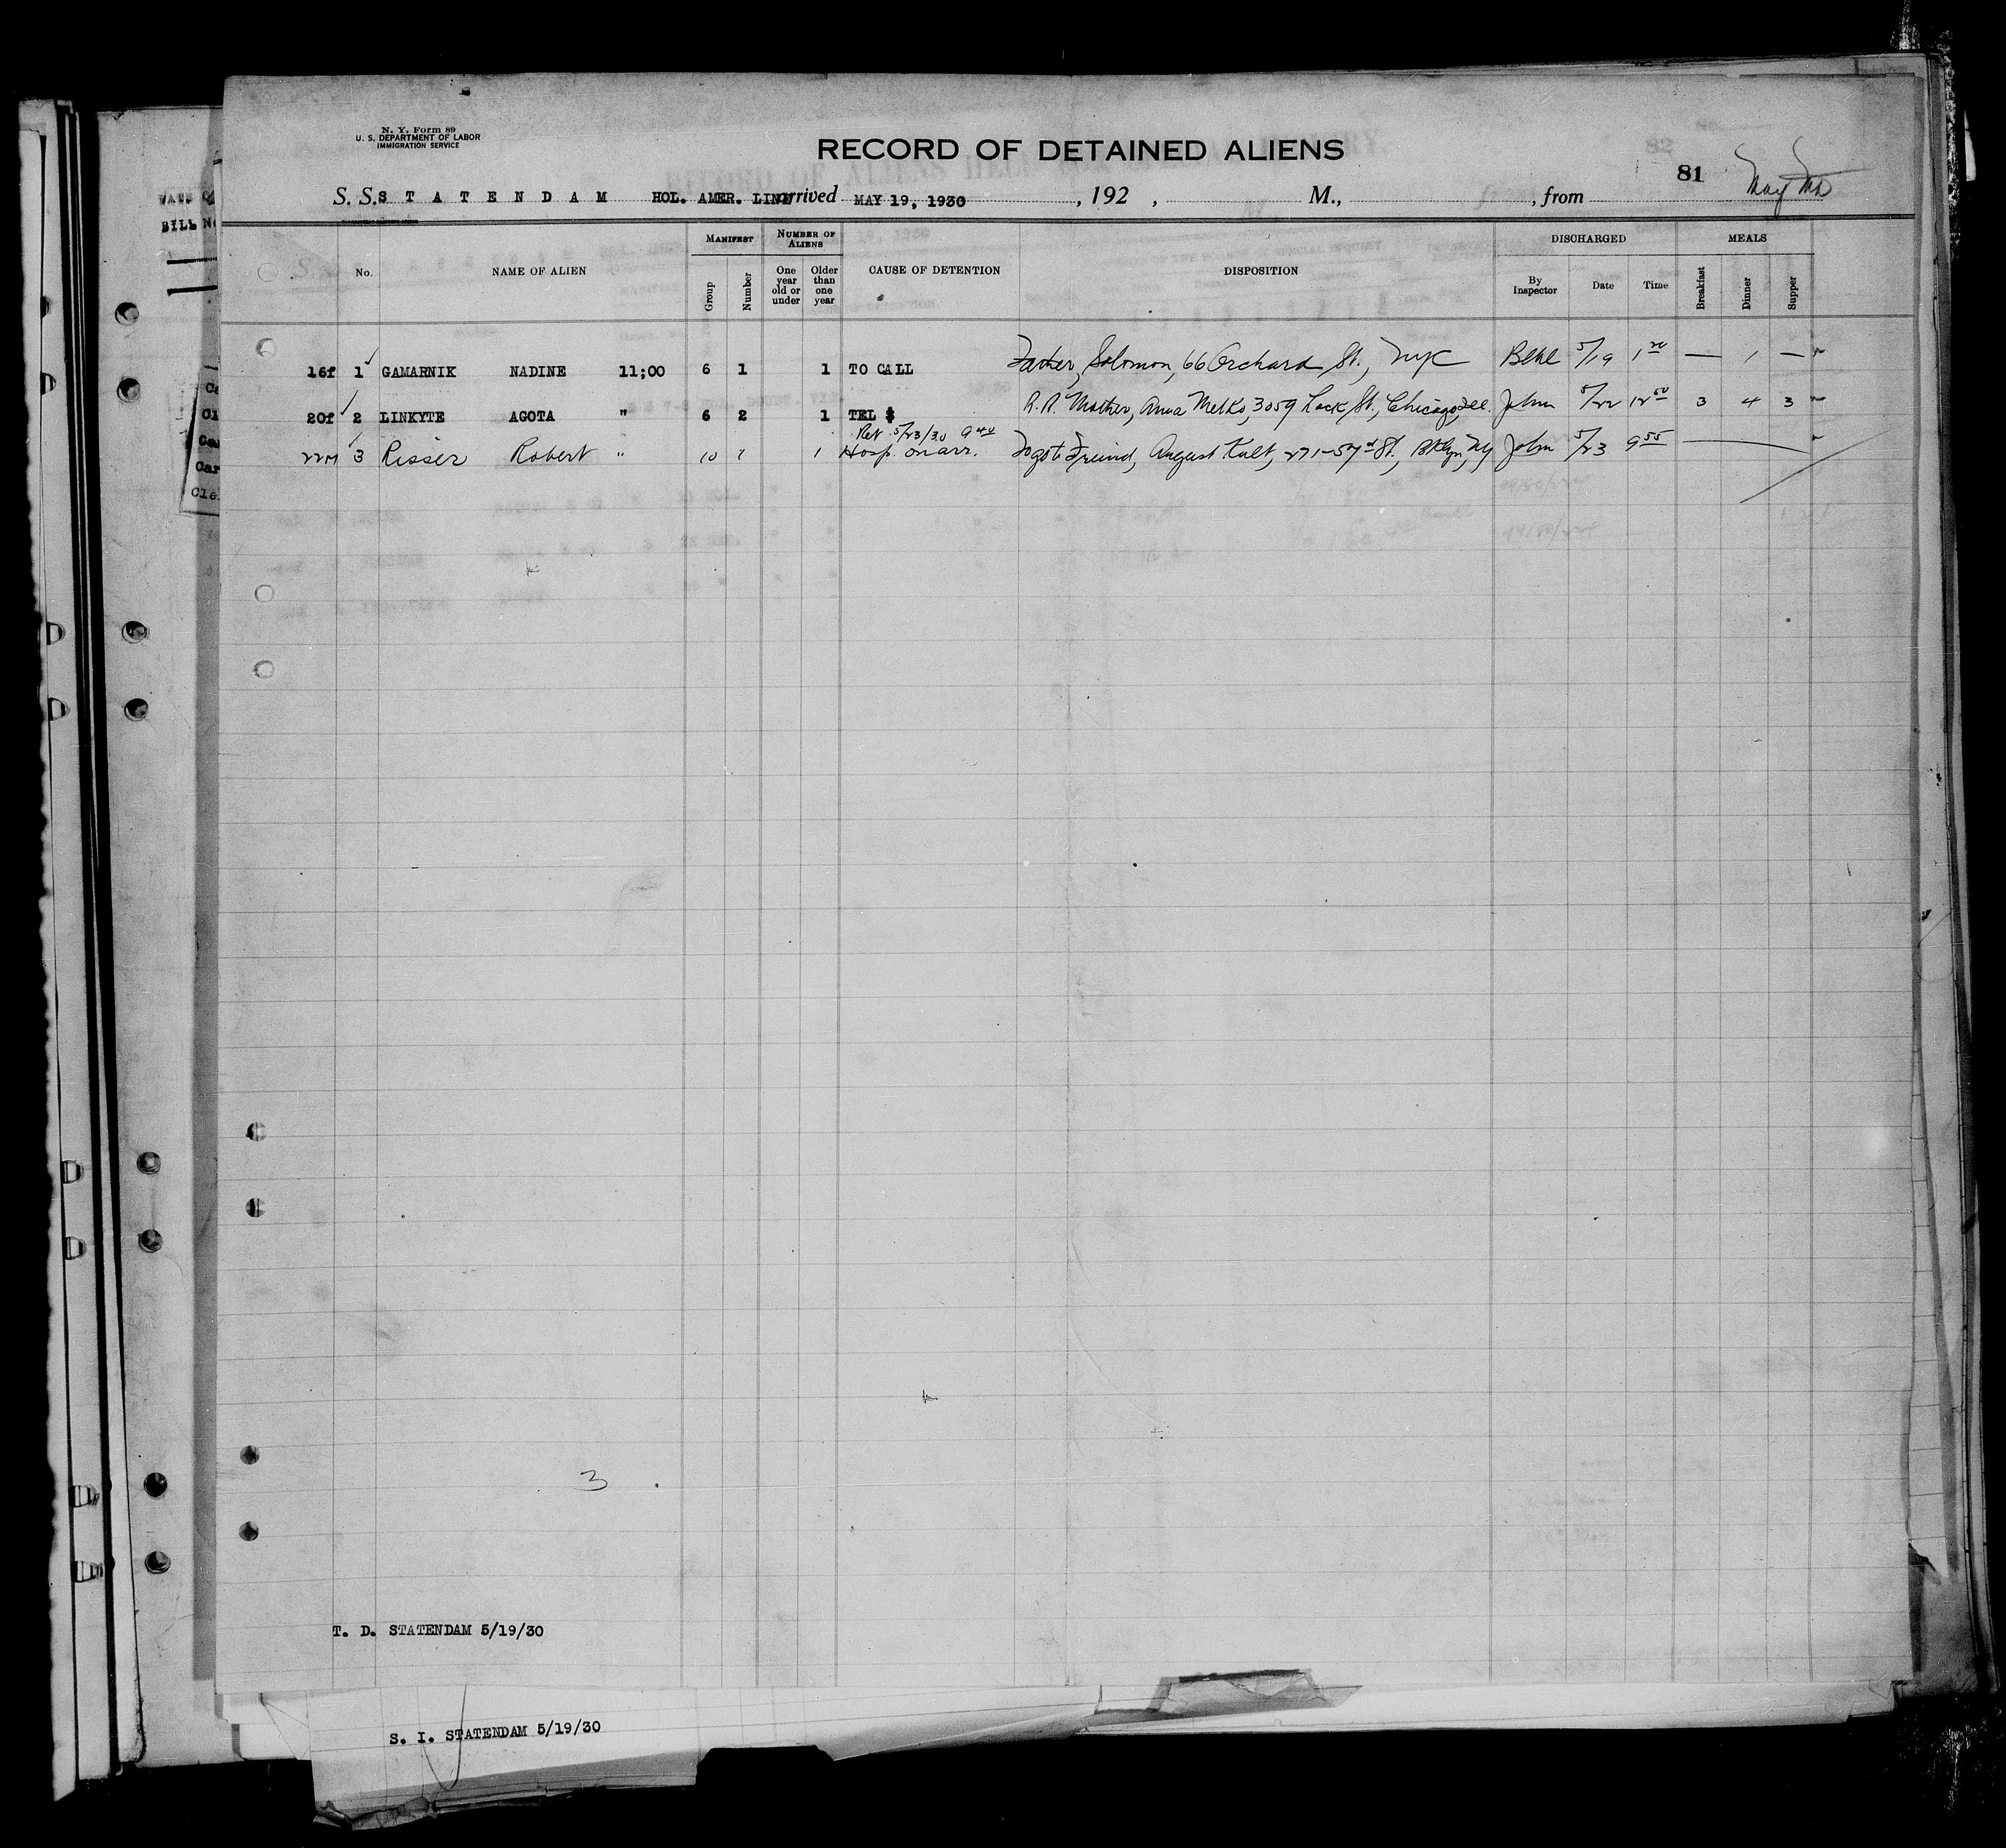 N. Y. Form 89
U. S. DEPARTMENT OF LABOR
IMMIGRATION SERVICE
RECORD OF DETAINED ALIENS
81
S. S. S T A T E N D A M HOL. AMER. LINE arrived MAY 19, 1930, 192 , M., , from
MANIFEST NUMBER OF ALIENS DISCHARGED MEALS
No. NAME OF ALIEN Group Number One year old or under Older than one year CAUSE OF DETENTION DISPOSITION By Inspector Date Time Breakfast Dinner Supper
16f 1 GAMARNIK NADINE 11;00 6 1 1 TO CALL Father, Solomon, 66 Orchard St., NYC 5/19 1 — 1 —
20f 2 LINKYTE AGOTA " 6 2 1 TEL $ Mother, Anna Melko, 3059 St., Chicago, Ill. John 5/22 12 50 3 4 3
22M 3 Risser Robert " 10 1 Hosp. on arr. 5/23/30 9 40 To go to Freind, August 271-57 St., Bklyn, Ny John 5/23 9 55
3
T. D. STATENDAM 5/19/30
S. I. STATENDAM 5/19/30